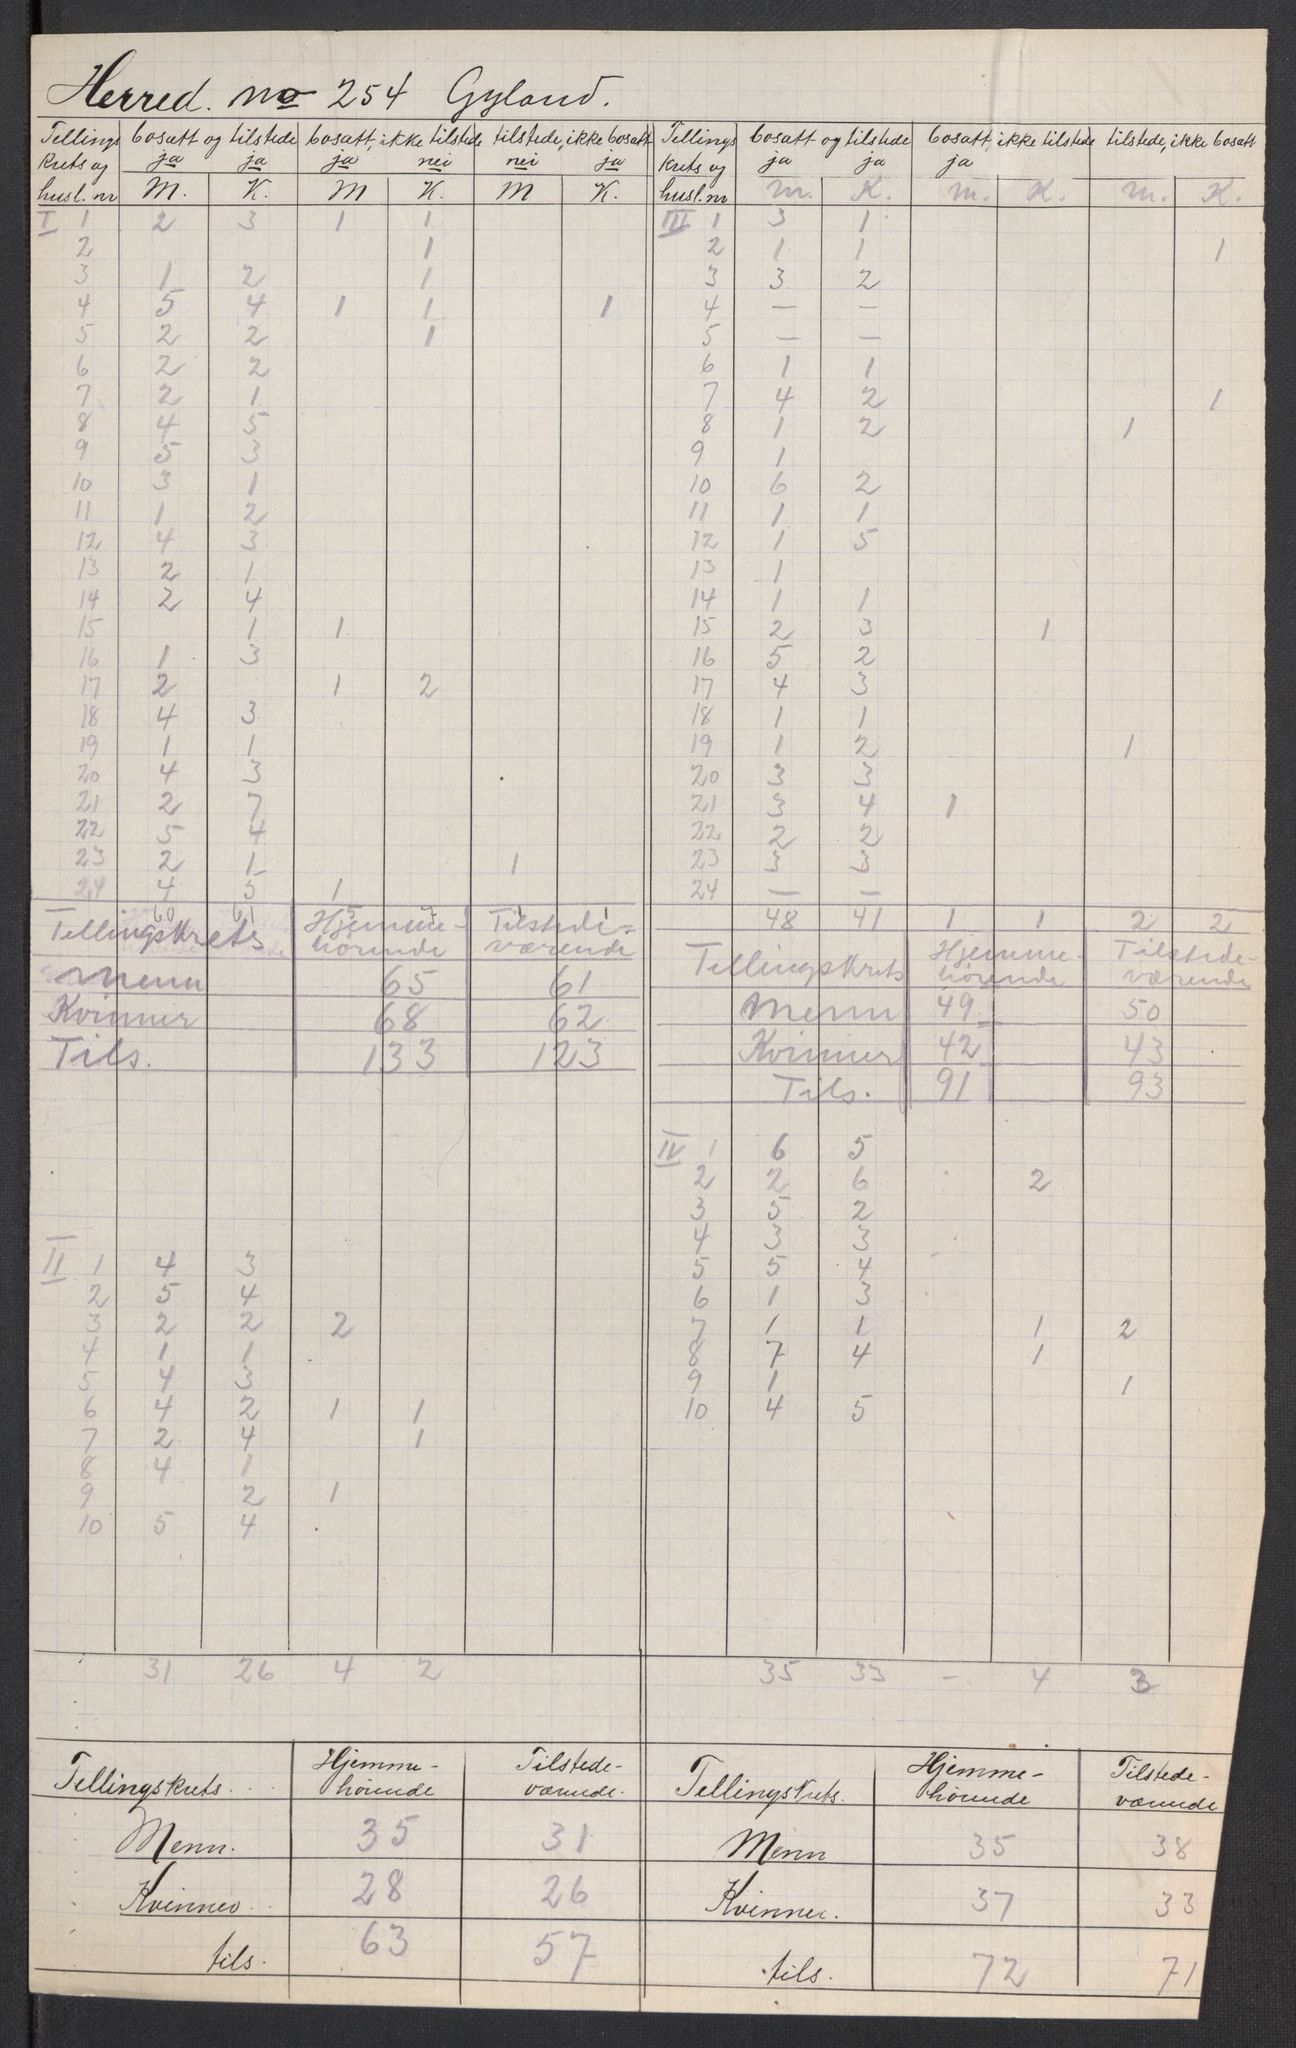 Herred. no 254 Gyland.
Tellings bosatt og tilstede bosatt, ikke tilstede tilstede, ikke bosatt
krets og ja ja ja nei nei ja
husl. nr M. K. M K. M K.
I 1 2 3 1 1
2 1
3 1 2 1
4 5 4 1 1 1
5 2 2 1
6 2 2
7 2 1
8 4 5
9 5 3
10 3 1
11 1 2
12 4 3
13 2 1
14 2 4
15 1 1
16 1 3
17 2 1 2
18 4 3
19 1 1
20 4 3
21 2 7
22 5 4
23 2 1 1
24 4 5 1
60 61
Tellingskrets Hjemme- Tilstede-
hörende værende
Menn 65 61
Kvinner 68 62
Tils. 133 123
II 1 4 3
2 5 4
3 2 2 2
4 1 1
5 4 3
6 4 2 1 1
7 2 4 1
8 4 1
9 2 1
10 5 4
31 26 4 2
Tellingskrets Hjemme- Tilstede-
hörende værende.
Menn. 35 31
Kvinner 28 26
tils. 63 57
Tellings bosatt og tilstede bosatt, ikke tilstede tilstede, ikke bosatt
krets og ja ja ja
husl. nr M. K. M. K. M. K.
III 1 3 1
2 1 1 1
3 3 2
4 — —
5 — —
6 1 1
7 4 2 1
8 1 2 1
9 1
10 6 2
11 1 1
12 1 5
13 1
14 1 1
15 2 3 1
16 5 2
17 4 3
18 1 1
19 1 2 1
20 3 3
21 3 4 1
22 2 2
23 3 3
24 — —
48 41 1 1 2 2
Tellingskrets Hjemme- Tilstede-
hörende værende
Menn 49 50
Kvinner 42 43
Tils. 91 93
IV 1 6 5
2 2 6 2
3 5 2
4 3 3
5 5 4
6 1 3
7 1 1 1 2
8 7 4 1
9 1 1
10 4 5
35 33 — 4 3
Tellingskrets. Hjemme- Tilstede-
hörende værende
Menn 35 38
Kvinner. 37 33
tils. 72 71